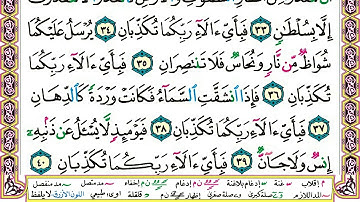 إِلَّا بِسُلْطَـٰنٍ ﴿٣٣﴾ فَبِأَيِّ آلَآءِ رَبِّكُمَا تُكَذِّبَانِ ﴿٣٤﴾ يُرْسَلُ عَلَيْكُمَا
شُوَاظٌ مِّن نَّارٍ وَنُحَاسٌ فَلَا تَنتَصِرَانِ ﴿٣٥﴾ فَبِأَيِّ آلَآءِ رَبِّكُمَا
تُكَذِّبَانِ ﴿٣٦﴾ فَإِذَا ٱنشَقَّتِ ٱلسَّمَآءُ فَكَانَتْ وَرْدَةً كَٱلدِّهَانِ
﴿٣٧﴾ فَبِأَيِّ آلَآءِ رَبِّكُمَا تُكَذِّبَانِ ﴿٣٨﴾ فَيَوْمَئِذٍ لَّا يُسْـَٔلُ عَن ذَنۢبِهِۦٓ
إِنسٌ وَلَا جَآنٌّ ﴿٣٩﴾ فَبِأَيِّ آلَآءِ رَبِّكُمَا تُكَذِّبَانِ ﴿٤٠﴾